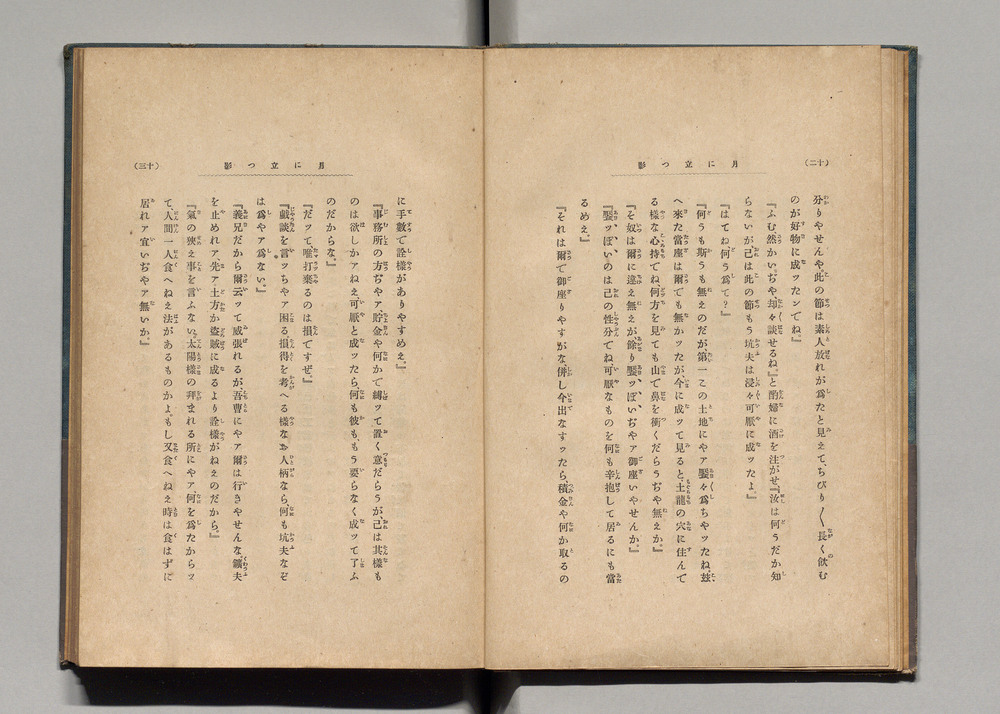 (十二)
月に立つ影
分りやせんや、此の節は素人放れが爲たと見えて、ちびり〱長く飮む
のが好物に成ツたンでね。』
『ふむ然かい。ぢや却々談せるね』と酌婦に酒を注がせ『汝は何うだか知
らないが、己は此の節もう坑夫は浸々可厭に成ツたよ』
『はてね何う爲て？』
『何うも斯うも無えのだが、第一この土地にやア鬢々爲ちやツたね、玆
へ來た當座は爾でも無かツたが、今に成ツて見ると、土龍の穴に住んで
る樣な心持でね、何方を見ても山で鼻を衝くだらうぢや無えか。』
『そ奴は爾に違え無えが、餘り鬢ツぽいぢやア御座いやせんか。』
『鬢ツぽいのは己の性分でね、可厭なものを何も辛抱して居るにも當
るめえ。』
『それは爾で御座りやすがな、併し今出なすツたら、積金や何か取るの
(十三)
月に立つ影
に手數で詮樣がありやすめえ。』
『事務所の方ぢやア、貯金や何かで縛ツて置く意だらうが、己は其樣も
のは欲しかアねえ、可厭と成ツたら、何も彼も、もう要らなく成ツて了ふ
のだからな。』
『だツて、唯打棄るのは損ですぜ。』
『戲談を言ツちやア困る、損得を考へる樣なお人柄なら、何も坑夫なぞ
は爲やア爲ない。』
『義兄だから爾云ツて威張れるが、吾曹にやア爾は行きやせんな、鑛夫
を止めれア、先ア土方か盜賊に成るより詮樣がねえのだから。』
『氣の狹え事を言ふない、太陽樣の拜まれる所にやア何を爲たからツ
て、人間一人食へねえ法があるものかよ。もし又食へねえ時は食はずに
居れア宜いぢやア無いか。』